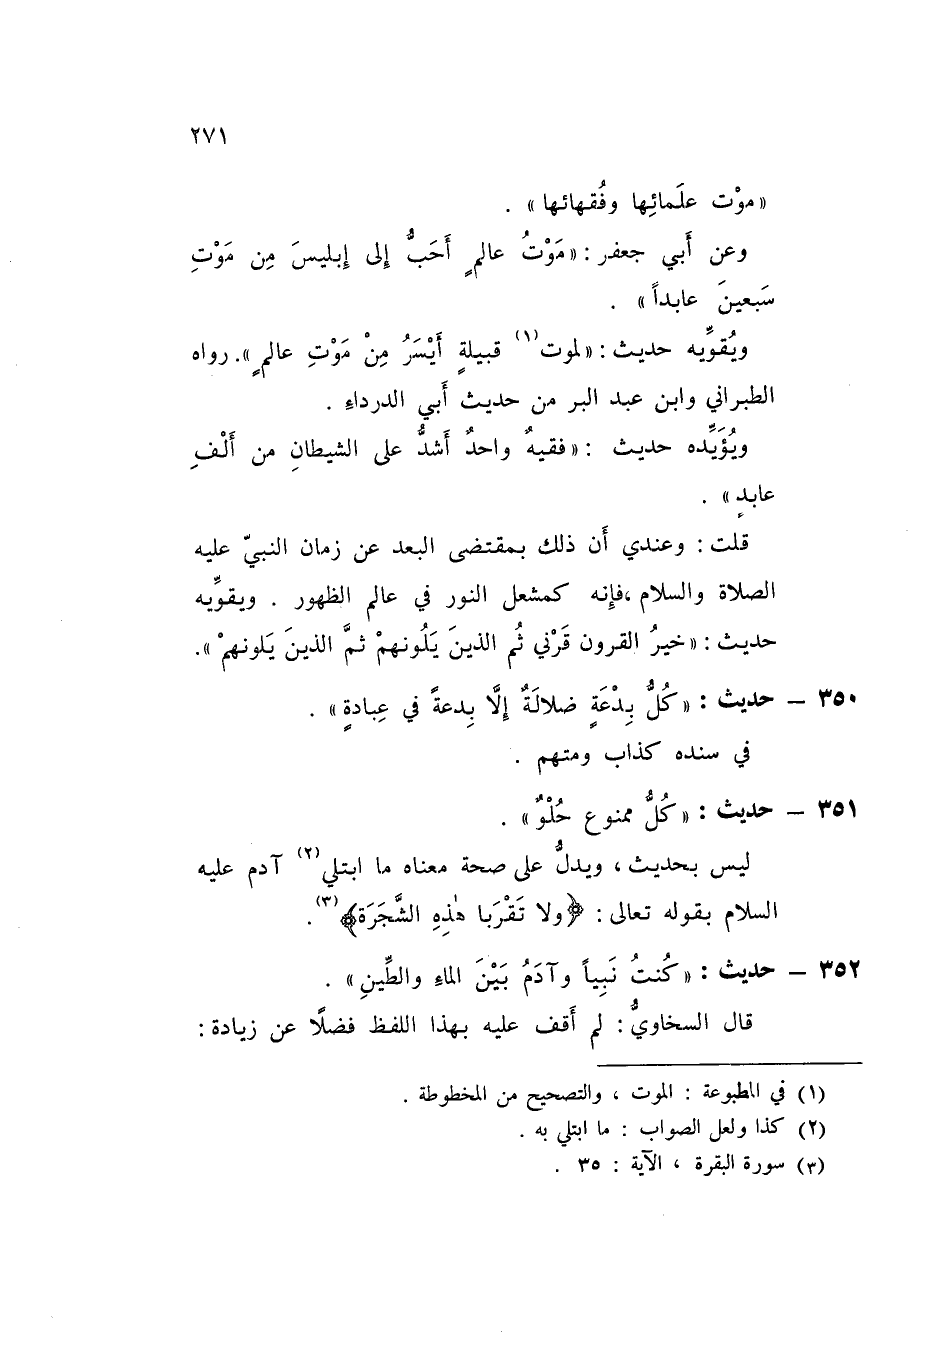 ٢٧١
«موْت علَمائِها وفُقهائها» .
وعن أَبي جعفر : «مَوْتُ عالمٍ أَحَبُّ إِلى إِبليسَ مِن مَوْتِ
سَبعينَ عابداً» .
ويُقوِّيه حديث : «لموت(١) قبيلةٍ أَيْسَرُ مِنْ مَوْتِ عالمٍ». رواه
الطبراني وابن عبد البر من حديث أَبي الدرداءِ .
ويُؤَيِّده حديث : «فقيهٌ واحدٌ أَشدُّ على الشيطانِ من أَلْفِ
عابدٍ» .
قلت : وعندي أَن ذلك بمقتضى البعد عن زمان النبيّ عليه
الصلاة والسلام ،فإِنه كمشعل النور في عالم الظهور . ويقوِّيه
حديث : «خيرُ القرون قَرْني ثُم الذينَ يَلُونهمْ ثمَّ الذينَ يَلونهمْ».
٣٥٠ – حديث : «كُلُّ بِدْعَةٍ ضلالَةٌ إِلَّا بِدعةً في عِبادةٍ» .
في سنده كذاب ومتهم .
٣٥١ – حديث : «كُلُّ ممنوع حُلْوٌ» .
ليس بحديث ، ويدلُّ على صحة معناه ما ابتلي(٢) آدم عليه
السلام بقوله تعالى : ﴿ولا تَقْرَبا هٰذِهِ الشَّجَرَة﴾(٣).
٣٥٢ – حديث : «كُنتُ نَبِياً وآدَمُ بَيْنَ الماءِ والطِّينِ» .
قال السخاويُّ : لم أَقف عليه بهذا اللفظ فضلًا عن زيادة :
(١) في المطبوعة : الموت ، والتصحيح من المخطوطة .
(٢) كذا ولعل الصواب : ما ابتلي به .
(٣) سورة البقرة ، الآية : ٣٥ .